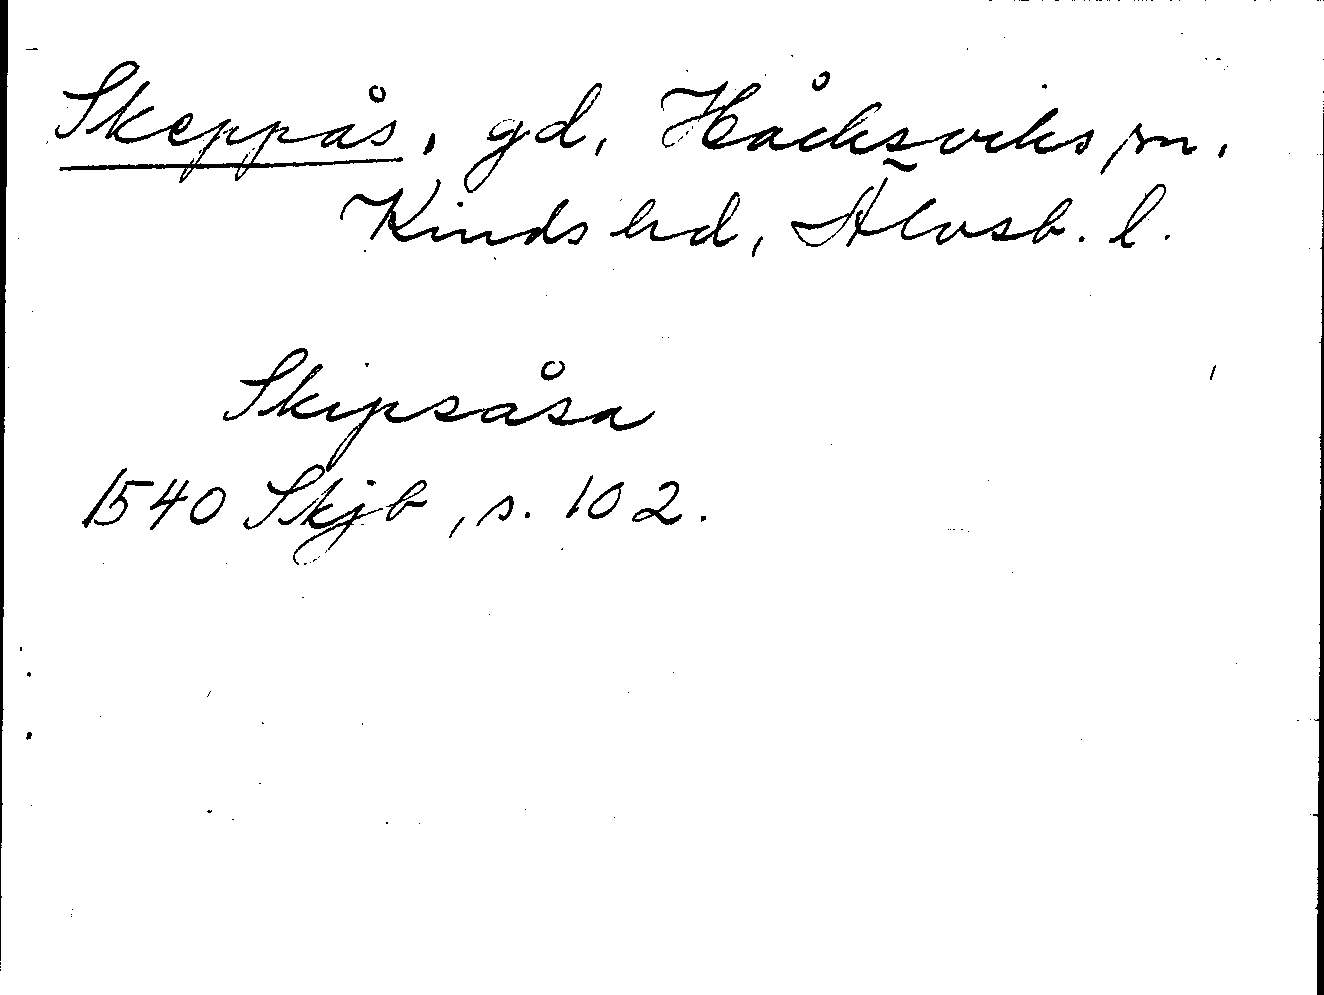 Skeppås, gd, Håcksviks sn,
Kinds hd, Älvsb. l.
Skipsåsa
1540 Skjb, s. 102.